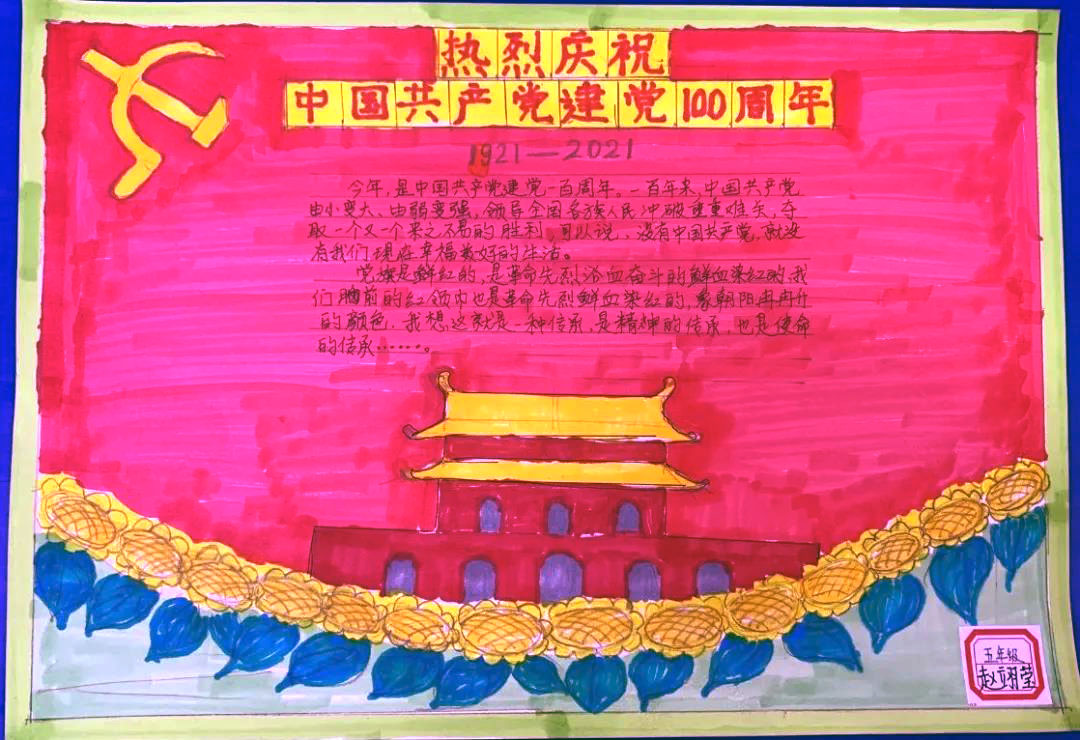 热烈庆祝
中国共产党建党100周年
1921—2021
今年，是中国共产党建党一百周年。一百年来，中国共产党
由小变大、由弱变强，领导全国各族人民冲破重重难关，夺
取一个又一个来之不易的胜利，可以说，没有中国共产党，就没
有我们现在幸福美好的生活。
党旗是鲜红的，是革命先烈浴血奋斗的鲜血染红的，我
们胸前的红领巾也是革命先烈鲜血染红的，象朝阳冉冉升
的颜色，我想这就是一种传承，是精神的传承，也是使命
的传承……。
五年级
赵翊莹